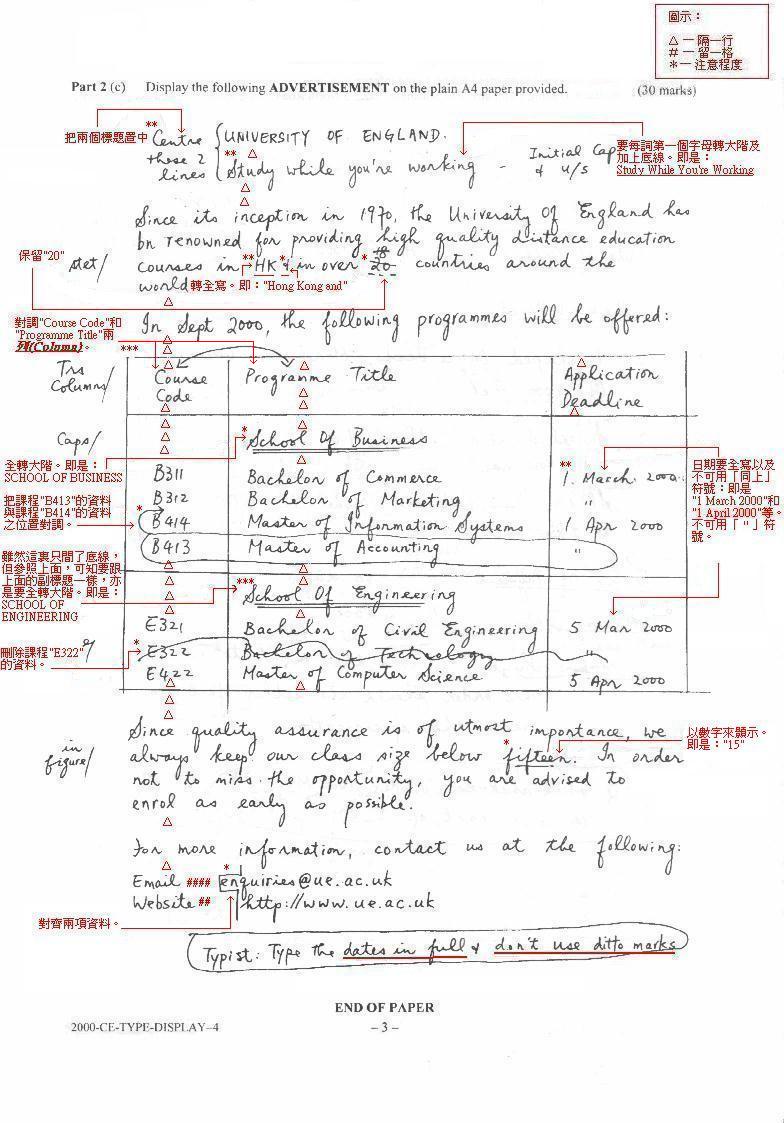 圖示：
△ 一 隔一行
# 一 留一格
* 一 注意程度
Part 2 (c) Display the following ADVERTISEMENT on the plain A4 paper provided. (30 marks)
把兩個標題置中
** Centre those 2 lines
UNIVERSITY OF ENGLAND.
** Study while you're working - Initial Cap & u/s
要每詞第一個字母轉大階及
加上底線。即是：
Study While You're Working
Since its inception in 1970, the University Of England has
bn renowned for providing high quality distance education
保留"20"
stet/
courses in ** HK * & in over * 18 20 countries around the
world
轉全寫。即："Hong Kong and"
In Sept 2000, the following programmes will be offered:
對調"Course Code"和
"Programme Title"兩
列(Column)。
***
Trs Columns/
Course Code
Programme Title
Application Deadline
Caps/
* School Of Business
全轉大階。即是：
SCHOOL OF BUSINESS
B311 Bachelor of Commerce ** 1 March 2000
B312 Bachelor of Marketing "
* B414 Master of Information Systems 1 Apr 2000
B413 Master of Accounting "
把課程"B413"的資料
與課程"B414"的資料
之位置對調。
日期要全寫以及
不可用「同上」
符號：即是
"1 March 2000"和
"1 April 2000"等。
不可用「 " 」符
號。
雖然這裏只間了底線，
但參照上面，可知要跟
上面的副標題一樣，亦
是要全轉大階。即是：
SCHOOL OF
ENGINEERING
*** School Of Engineering
E321 Bachelor of Civil Engineering 5 Mar 2000
* E322 Bachelor of Technology "
E422 Master of Computer Science 5 Apr 2000
刪除課程"E322"
的資料。
Since quality assurance is of utmost importance, we
in figure/
always keep our class size below * fifteen. In order
以數字來顯示。
即是："15"
not to miss the opportunity, you are advised to
enrol as early as possible.
For more information, contact us at the following:
Email #### * enquiries@ue.ac.uk
Website ## http://www.ue.ac.uk
對齊兩項資料。
Typist: Type the dates in full & don't use ditto marks
END OF PAPER
2000-CE-TYPE-DISPLAY–4
– 3 –